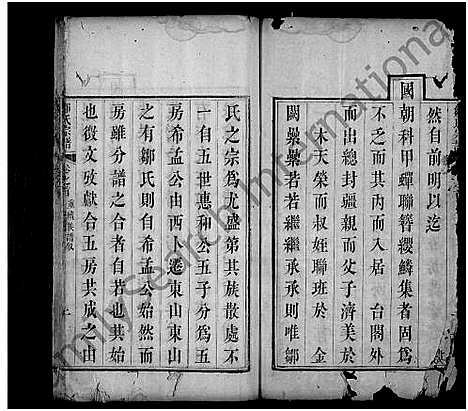 然自前明以迄
國朝科甲蟬聯簪纓鱗集者固爲
不乏而其內而入居 台閣外
而出總封疆親而父子濟美於
木天榮而叔姪聯班於 金
闕纍纍若若繼繼承承則唯鄒
氏之宗爲尤盛第其族散處不
一自五世惠和公五子分爲五
房希孟公由西卜遷東山東山
之有鄒氏則自希孟公始然而
房雖分譜之合者自若也其始
也徵文攷獻合五房共成之山
氏宗譜
FamilySearch International